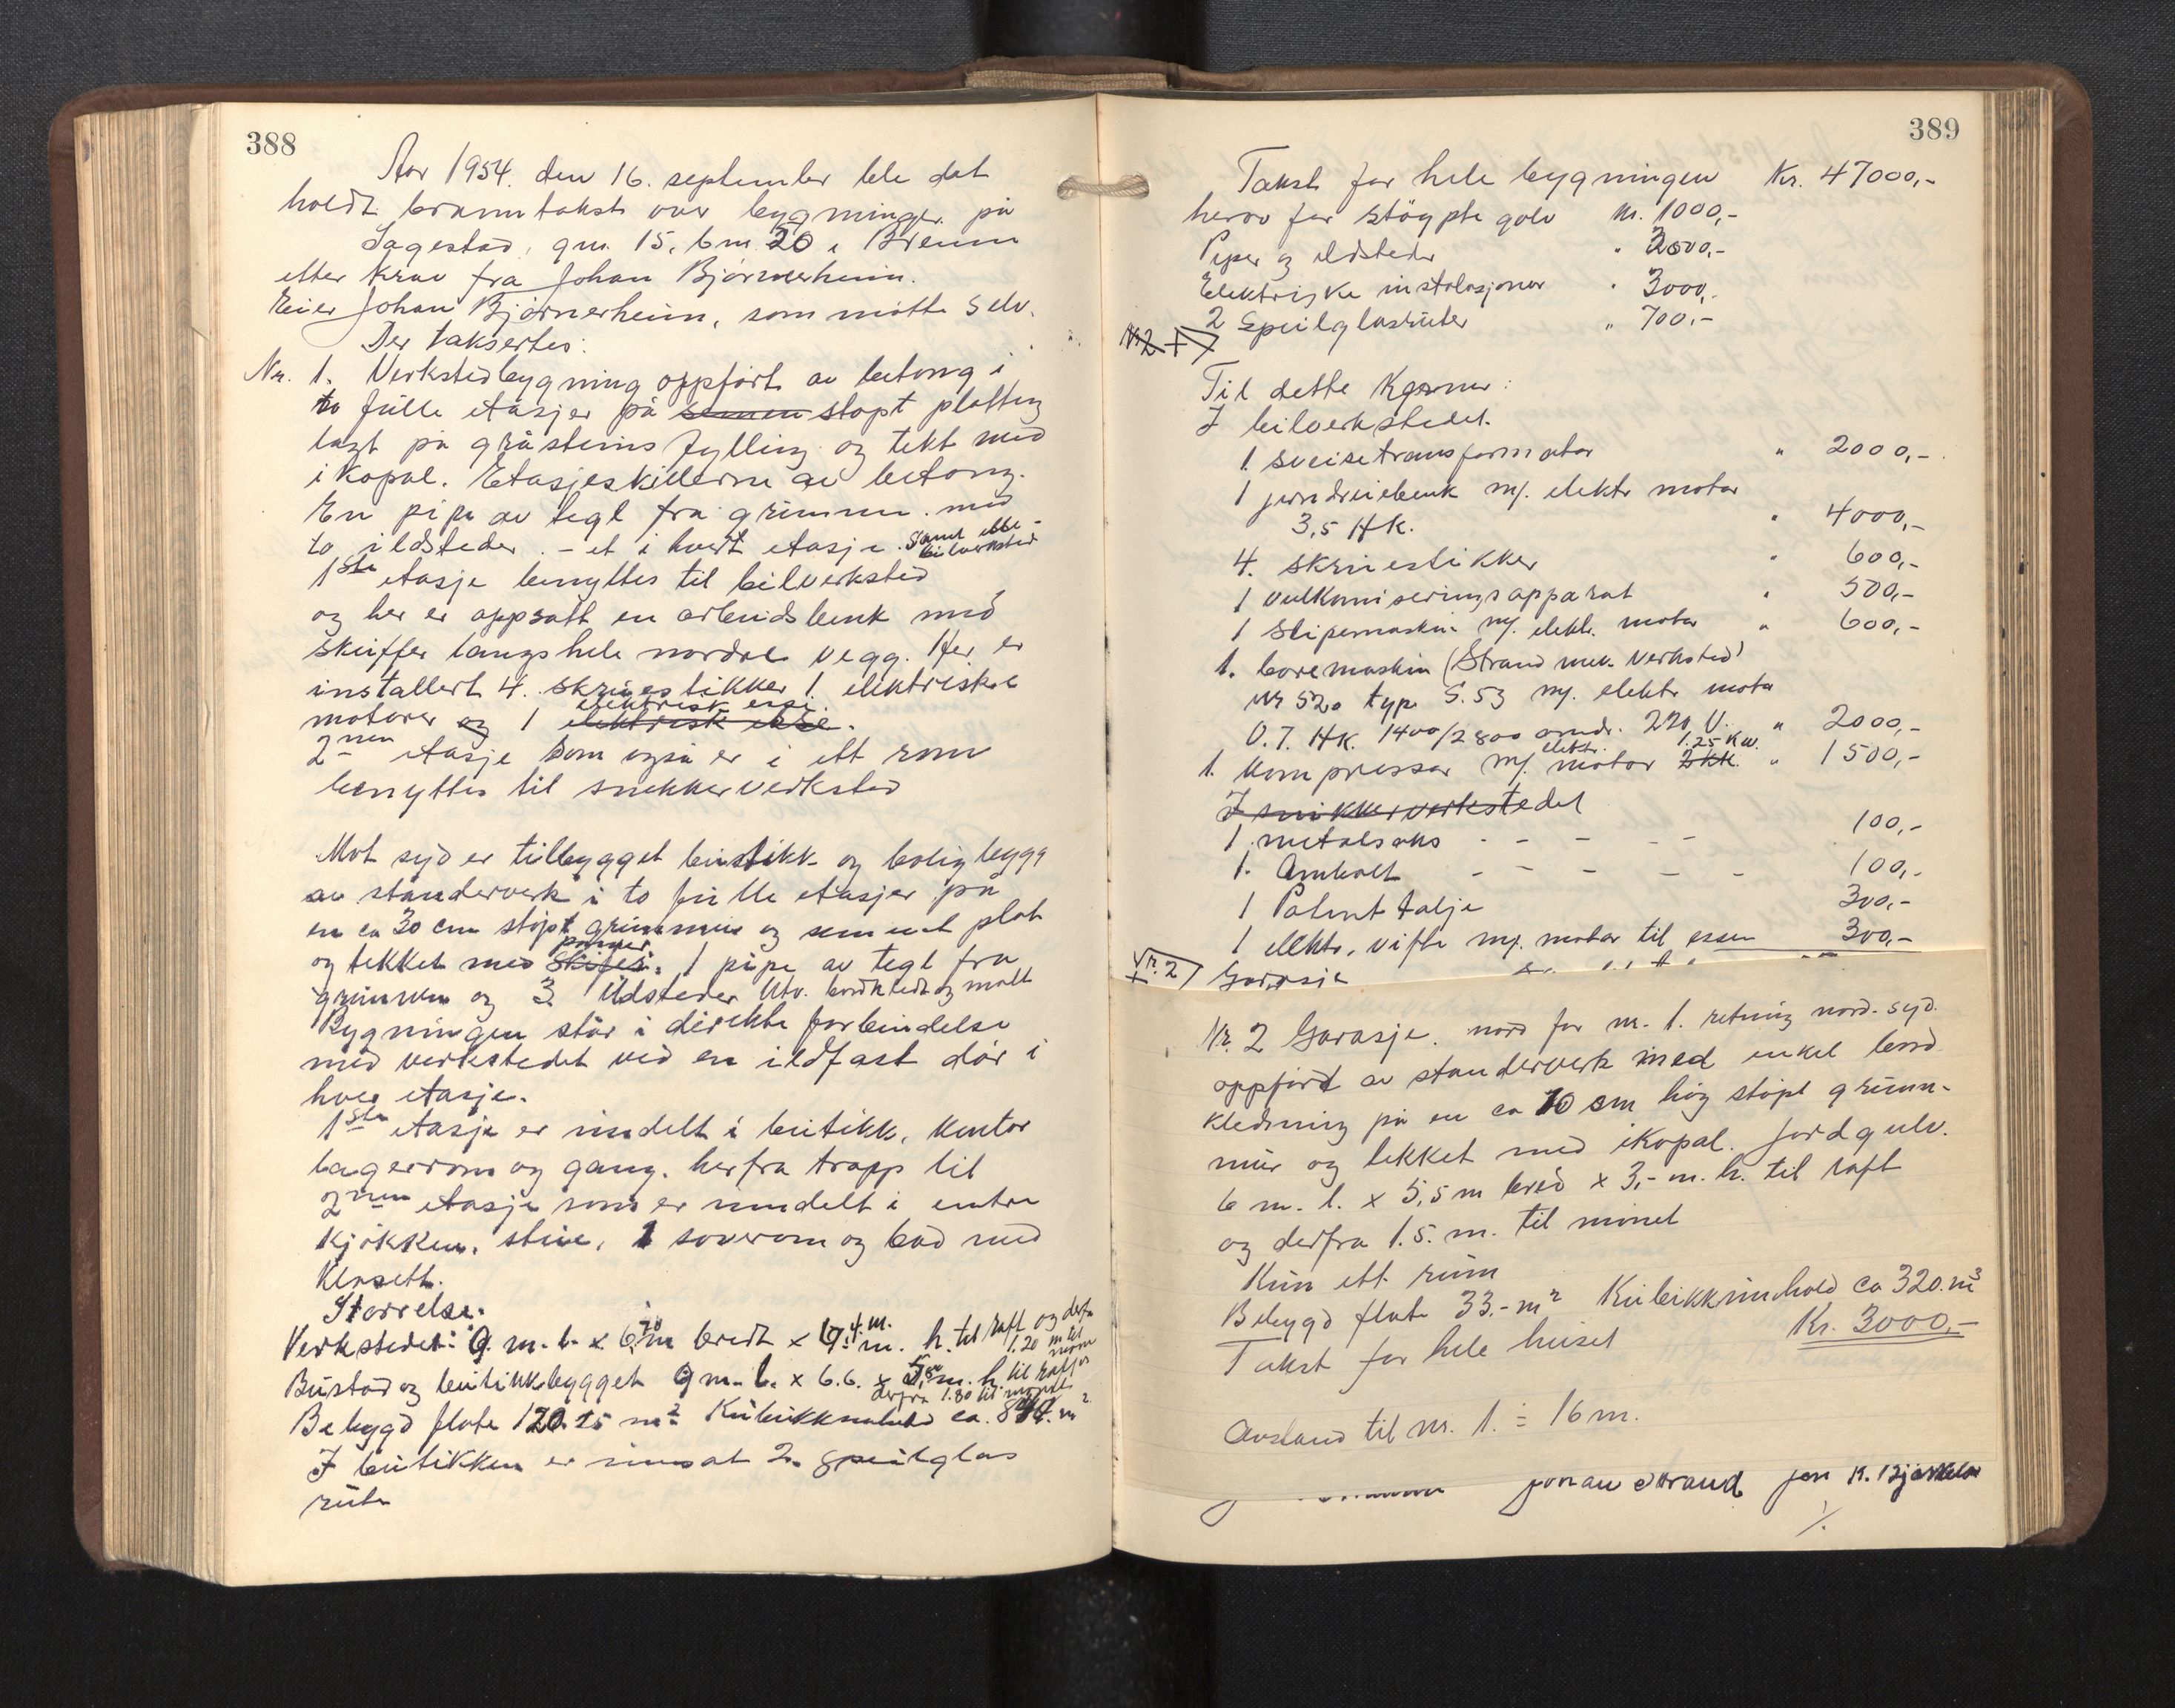 388
Aar 1954. den 16. september ble det
holdt branntakst over bygninger på
Sagestad, gnr. 15, bnr. 20 i Breim
etter krav fra Johan Bjørnerheim.
Eier Johan Bjørnerheim, som møtte selv.
Der taksertes:
Nr. 1. Verkstedbygning oppført av betong i
to fulle etasjer på støpt platting
lagt på gråsteins fylling og tekt med
ikopal. Etasjeskillerne av betong.
En pipe av tegl fra grunnen med
to ildsteder. - et i hvert etasje. samt esse bilverksted
1ste etasje benyttes til bilverksted
og her er oppsatt en arbeidsbenk med
skuffer langs hele nordre vegg. Her er
installert 4. skruestikker 1. elektriske
motorer og 1 elektrisk esse.
2nen etasje som også er i ett rom
benyttes til snekkerverksted
Mot syd er tilbygget butikk- og boligbygg
av standerverk i to fulle etasjer på
en ca 30 cm støpt grunnmur og sement plat
og tekket med panner. 1 pipe av tegl fra
grunnen og 3. ildsteder. Utv. bordkledt og malt
Bygningen står i direkte forbindelse
med verkstedet ved en ildfast dør i
hver etasje.
1ste etasje er inndelt i butikk, kontor
lagerrom og gang. herfra trapp til
2nen etasje som er inndelt i entre
kjøkken, stue, 1 soverom og bad med
klosett.
Størrelse.
Verkstedet: 9. m. l. x 6.70 m bredt x 4. m. h. til raft og derfra 1.20 m til møne
Bustad og butikkbygget 9 m. l. x 6.6. x m. h. til raft og derfra 1.80 til mønet
Bebygd flate 120.15 m² Kubikkinnhold ca. m²
I butikken er innsat 2. speilglas
rute
389
Takst for hele bygningen Kr. 47000,-
herav for støypte golv Kr. 1000,-
Piper og ildsteder " 2000,-
Elektriske instalasjoner " 3000,-
2 Speilglasruter " 700,-
Nr 2 +
Til dette kommer:
I bilverkstedet.
1 sveisetransformator " 2000,-
1 jerndreiebenk m/. elektr motor
3,5 Hk. " 4000,-
4. skruestikker " 600,-
1 vulkaniseringsapparat " 500,-
1 Slipemaskin m/. elektr. motor " 600,-
1. boremaskin (Strand mek. Verksted)
Nr 520 typ. S.53 m/. elektr motor
0.7. Hk. 1400/2800 omdr. 220 V. " 2000,-
1. kompressor m/. elektr. motor 1.25 Kw. " 1500,-
I snikkerverkstedet
1 metalsaks - - - - 100,-
1. Ambolt - - - - - 100,-
1 Patent talje 300,-
1 elektr. vifte m/. motor til essen 300,-
Nr. 2 Garasje
Nr. 2 Garasje. nord for nr. 1. retning nord-syd.
oppført av standerverk med enkel bord
kledning på en ca 10 sm høg støpt grunn-
mur og tekket med ikopal. Jordgulv.
6 m. l. x 5,5 m bred x 3,- m. h. til raft
og derfra 1.5. m. til mønet
Kun ett rum
Bebygd flate 33.- m² Kubikkinnhold ca 320. m³
Takst for hele huset Kr. 3000,-
Avstand til nr. 1. = 16 m.
Johan Strand Jon K. Bjørkelo